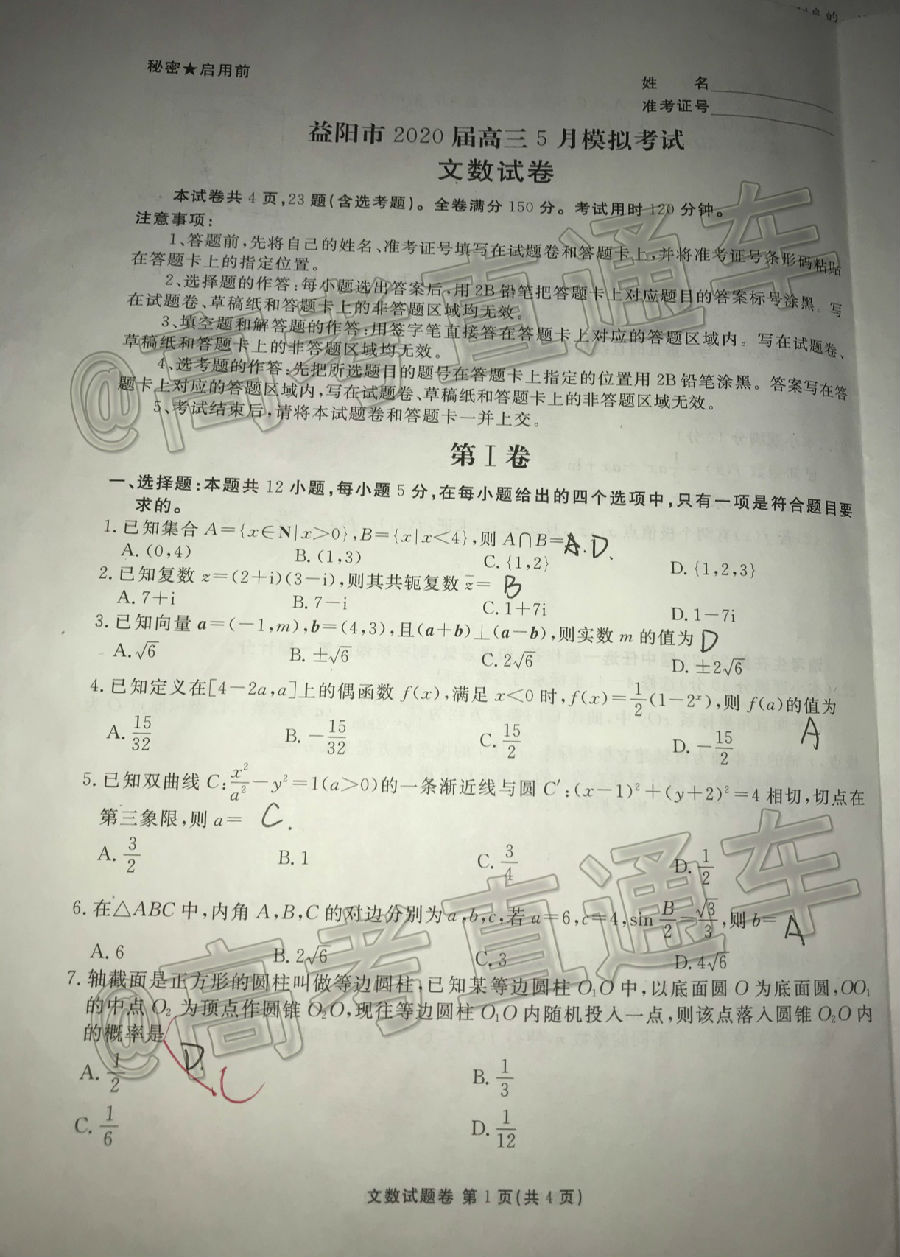 秘密★启用前
姓 名
准考证号
益阳市 2020 届高三 5 月模拟考试
文数试卷
本试卷共 4 页,23 题(含选考题)。全卷满分 150 分。考试用时 120 分钟。
注意事项:
1、答题前,先将自己的姓名、准考证号填写在试题卷和答题卡上,并将准考证号条形码粘贴
在答题卡上的指定位置。
2、选择题的作答:每小题选出答案后,用 2B 铅笔把答题卡上对应题目的答案标号涂黑。写
在试题卷、草稿纸和答题卡上的非答题区域均无效。
3、填空题和解答题的作答:用签字笔直接答在答题卡上对应的答题区域内。写在试题卷、
草稿纸和答题卡上的非答题区域均无效。
4、选考题的作答:先把所选题目的题号在答题卡上指定的位置用 2B 铅笔涂黑。答案写在答
题卡上对应的答题区域内,写在试题卷、草稿纸和答题卡上的非答题区域无效。
5、考试结束后,请将本试题卷和答题卡一并上交。
第 I 卷
一、选择题:本题共 12 小题,每小题 5 分,在每小题给出的四个选项中,只有一项是符合题目要
求的。
1. 已知集合 A={x∈N|x>0},B={x|x<4},则 A∩B= A. D.
A. (0,4) B. (1,3) C. {1,2} D. {1,2,3}
2. 已知复数 z=(2+i)(3-i),则其共轭复数 z̄= B
A. 7+i B. 7-i C. 1+7i D. 1-7i
3. 已知向量 a=(-1,m),b=(4,3),且(a+b)⊥(a-b),则实数 m 的值为 D
A. √6 B. ±√6 C. 2√6 D. ±2√6
4. 已知定义在[4-2a,a]上的偶函数 f(x),满足 x<0 时,f(x)=1/2(1-2ˣ),则 f(a)的值为
A. 15/32 B. -15/32 C. 15/2 D. -15/2 A
5. 已知双曲线 C:x²/a²-y²=1(a>0)的一条渐近线与圆 C′:(x-1)²+(y+2)²=4 相切,切点在
第三象限,则 a= C.
A. 3/2 B. 1 C. 3/4 D. 1/2
6. 在△ABC 中,内角 A,B,C 的对边分别为 a,b,c. 若 a=6,c=4,sin B/2=√3/3,则 b= A
A. 6 B. 2√6 C. 3 D. 4√6
7. 轴截面是正方形的圆柱叫做等边圆柱,已知某等边圆柱 O₁O 中,以底面圆 O 为底面圆,OO₁
的中点 O₂ 为顶点作圆锥 O₂O,现往等边圆柱 O₁O 内随机投入一点,则该点落入圆锥 O₂O 内
的概率是 D. C
A. 1/2 B. 1/3
C. 1/6 D. 1/12
文数试题卷 第 1 页(共 4 页)
@高考直通车
@高考直通车